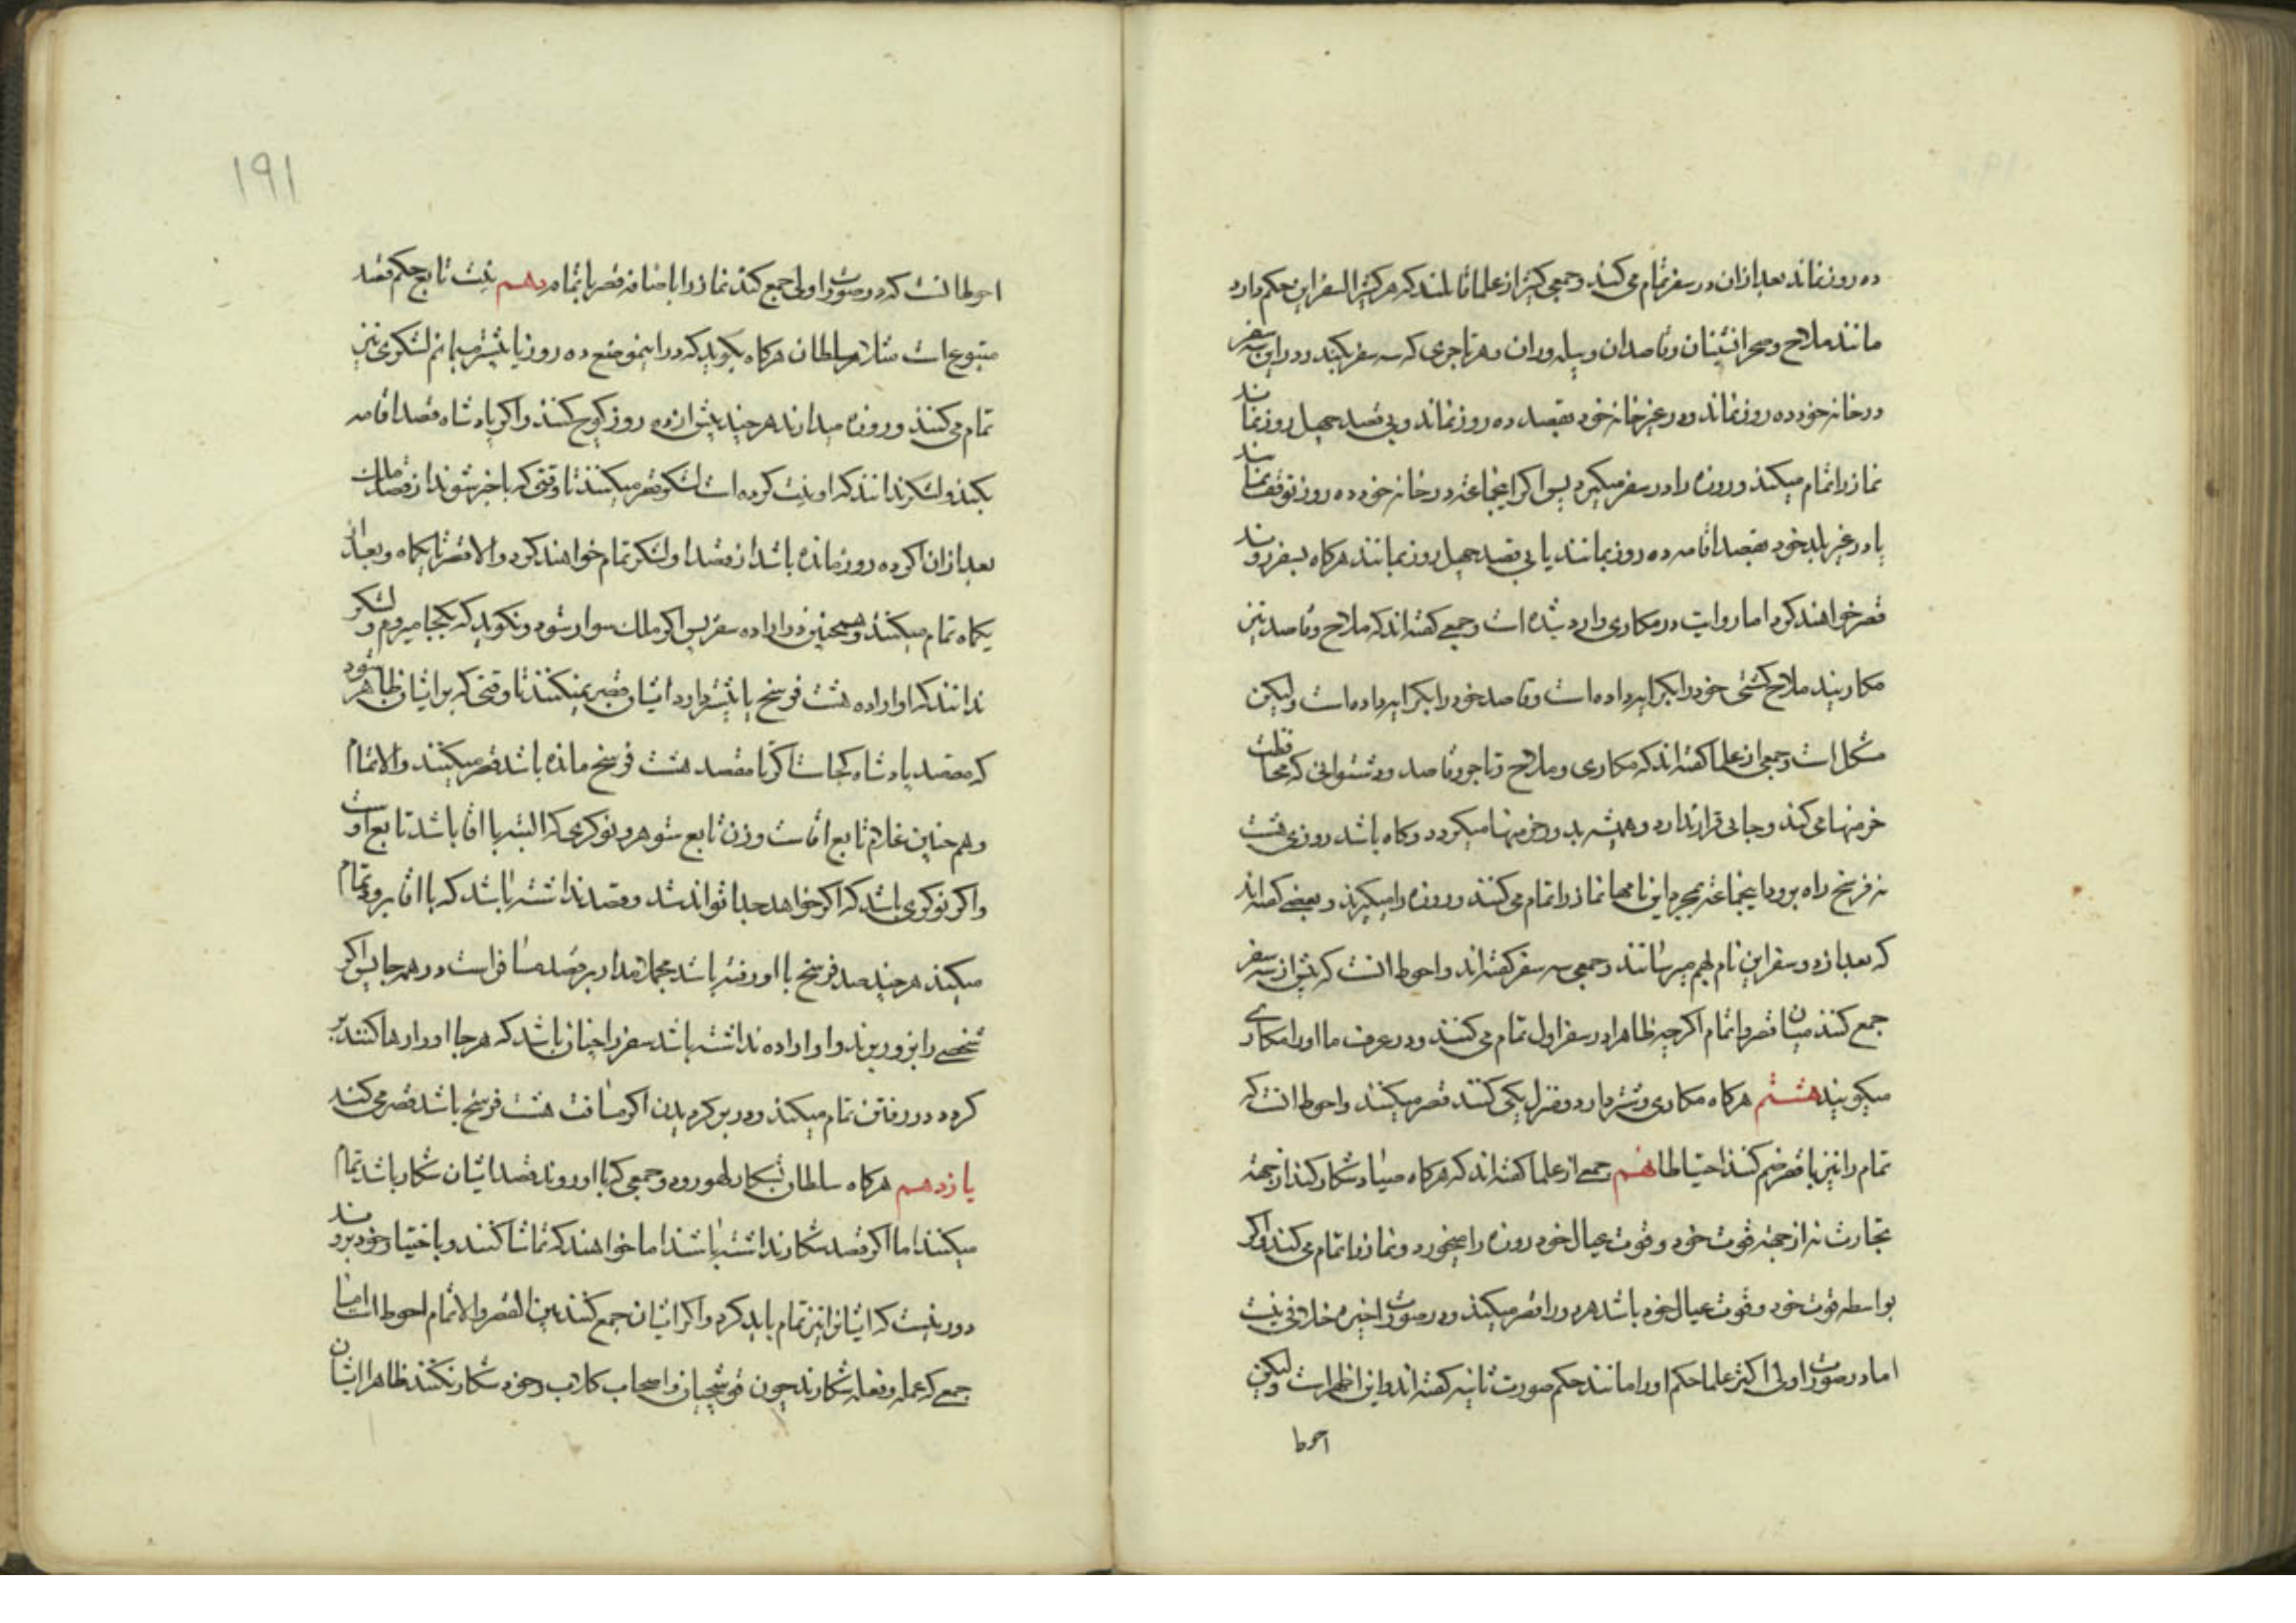 ده روز نماند بعد ازان در سفر تمام می کند و جمعی کثیر از علما قائلند که هر کثیر السفر این حکم دارد
مانند ملاح و صحرانشینان و قاصدان و پیله وران و هر تاجری که سه سفر بکند و در این سه سفر
در خانه خود ده روز نماند و در غیر خانه خود بقصد ده روز نماند و بی قصد چهل روز نماند
نماز را تمام میکند و روزه را در سفر میگیرد پس اگر اینجماعه در خانه خود ده روز توقف نمایند
یا در غیر بلد خود بقصد اقامه ده روز بمانند یا بی قصد چهل روز بمانند هرکاه بسفر روند
قصر خواهند کرد اما روایت در مکاری وارد شده است و جمعی گفته اند که ملاح و قاصد نیز
مکاریند ملاح کشتی خود را بکرایه داده است و قاصد خود را بکرایه داده است و لیکن
مشکل است و جمعی از علما کفته اند که مکاری و ملاح و تاجر و قاصد و دشتبوانی که محافظت
خرمنها می کند و جایی قرار ندارد و همیشه بدور خرمنها میکردد و کاه باشد روزی هشت
نه فرسخ راه برود اینجماعه بمجرد این نامها نماز را تمام می کنند و روزه را میگیرند و بعضی کفته اند
که بعد از دو سفر این نام بهم میرسانند و جمعی سه سفر کفته اند و احوط انست که پیش از سه سفر
جمع کنند میان قصر و اتمام اگر چه ظاهرا در سفر اول تمام می کنند و در عرف ما او را مکاری
میکویند هشتم هرکاه مکاری و شتردار دو منزل یکی کنند قصر میکنند و احوط انست که
تمام را نیز با قصر ضم کنند احتیاطا نهم جمعی از علما کفته اند که هرکاه صیاد شکار کند از جهة
تجارت نه از جهة قوت خود و قوت عیال خود روزه را میخورد و نماز را تمام می کند و اگر
بواسطه قوت خود و قوت عیال خود باشد هر دو را قصر میکند و در صورت اخیره خلافی نیست
اما در صورت اولی اکثر علما حکم او را مانند حکم صورت ثانیه کفته اند و این اظهر است و لیکن
احوط
۱۹۱
احوط انست که در صورت اولی جمع کند نماز را با ضافه قصر با تمام دهم نیت تابع حکم قصد
متبوع است مثلا هر سلطان هرکاه بکوید که در اینموضع ده روز یا بیشتر میمانم لشکری نیز
تمام می کنند و روزه میدارند هر چند پیش از ده روز کوچ کنند و اگر پادشاه قصد اقامه
بکند و لشکر ندانند که او نیت کرده است لشکر قصر میکنند تا وقتی که باخبر شوند از قصد ملک
بعد ازان اگر ده روز مانده باشد از قصد او لشکر تمام خواهند کرد و الا قصر تا یکماه و بعد از
یکماه تمام میکنند و همچنین در اراده سفر پس اگر ملک سوار شود و نکوید که بکجا میروم و لشکر
ندانند که او اراده هشت فرسخ یا بیشتر دارد ایشان قصر نمیکنند تا وقتی که بر ایشان ظاهر شود
که مقصد پادشاه کجاست اگر تا مقصد هشت فرسخ مانده باشد قصر میکنند و الا تمام
و هم چنین غلام تابع اقاست و زن تابع شوهر و نوکری که البته با اقا باشد تابع اوست
و اگر نوکری باشد که اگر خواهد جدا تواند شد و قصد نداشته باشد که با اقا برود تمام
میکند هر چند صد فرسخ با او رفته باشد مجملا مدار بر قصد مسافر است در همه جا پس اگر
شخصی را بزور برند و او اراده نداشته باشد سفر را چنان باشد که هر جا او را رها کنند بر
کردد در رفتن تمام میکند و در برکردیدن اگر مسافت هشت فرسخ باشد قصر می کند
یازدهم هرکاه سلطان بشکار لهو رود و جمعی که با او روند قصد ایشان شکار باشد تمام
میکنند اما اگر قصد شکار نداشته باشند اما خواهند که تماشا کنند و باختیار خود بروند
دور نیست که ایشانرا نیز تمام باید کرد و اگر ایشان جمع کنند بین القصر و الاتمام احوط است اما
جمعی که عمله و فعله شکارند چون قوشچیان و اصحاب کلاب و خود شکار نکنند ظاهرا ایشان